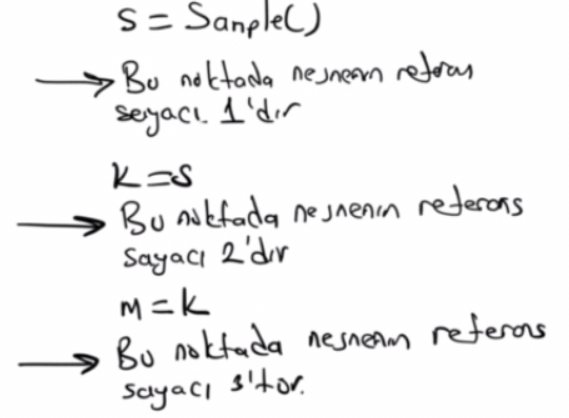 s = Sanple()
→ Bu noktada nesnenin referans
seyacı. 1'dir
k = s
→ Bu noktada nesnenin referans
sayacı 2'dir
m = k
→ Bu noktada nesnenin referans
sayacı 3'tür.